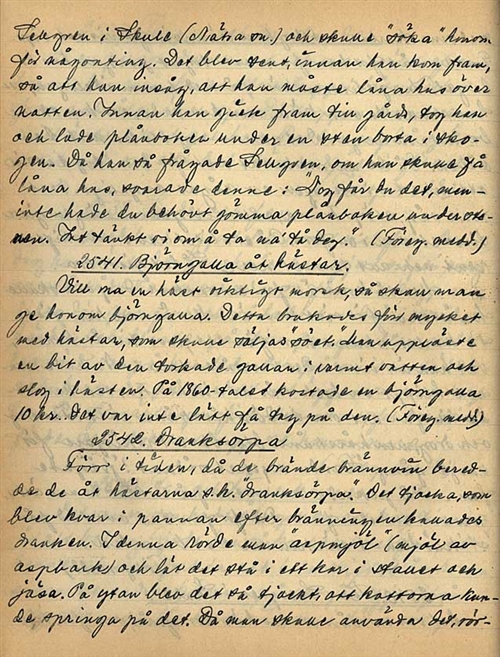 Sellgren i Skule (Nätra sn.) och skulle "söka" honom
för någonting. Det blev sent, innan han kom fram,
så att han insåg, att han måste låna hus över
natten. Innan han gick fram till gårds, tog han
och lade plånboken under en sten borta i sko-
gen. Då han så frågade Sellgren, om han skulle få
låna hus, svarade denne: "Jog får du det, men
inte hade du behövt gömma plånboken under ste-
nen. Int tänkt vi om å ta na tå deg." (Föreg. medd.)
2541. Björngalla åt hästar.
Vill ma en häst riktigt morsk, så skall man
ge honom björngalla. Detta brukades för mycket
med hästar, som skulle säljas "söet". Man upplöste
en bit av den torkade gallan i varmt vatten och
slog i hästen. På 1860-talet kostade en björngalla
10 kr. Det var inte lätt få tag på den. (Föreg. medd.)
2542. Dranksörpa
Förr i tiden, då de brände brännvin bered-
de de åt hästarna s.k. "dranksörpa". Det tjocka, som
blev kvar i pannan efter bränningen kallades
dranken. I denna rörde man "äspmjöl" (mjöl av
aspbark) och lät det stå i ett kar i stallet och
jäsa. På ytan blev det så tjockt, att kattorna kun-
de springa på det. Då man skulle använda det, rör-